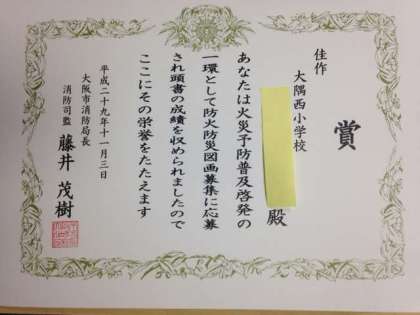 賞
佳作
大隅西小学校
殿
あなたは火災予防普及啓発の
一環として防火防災図画募集に応募
され頭書の成績を収められましたので
ここにその栄誉をたたえます
平成二十九年十一月三日
大阪市消防局長
消防司監 藤井茂樹